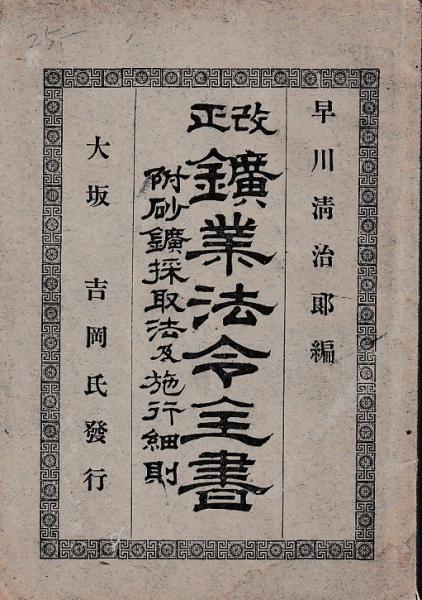 早川清治郎編
改正
鑛業法令全書
附砂鑛採取法及施行細則
大坂 吉岡氏發行
25